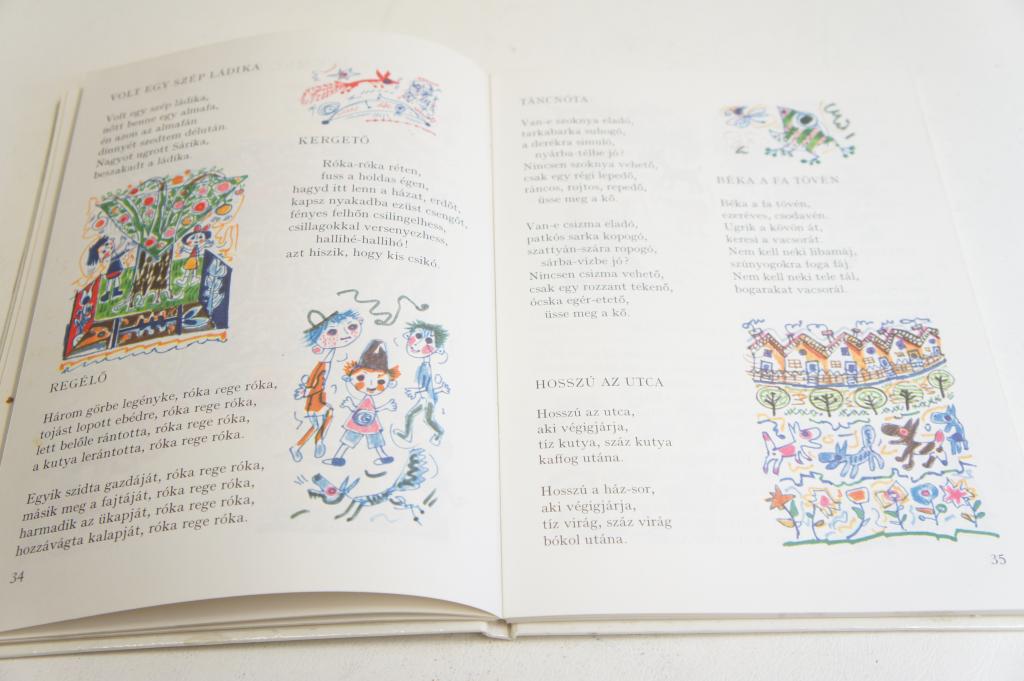 VOLT EGY SZÉP LÁDIKA
Volt egy szép ládika,
nőtt benne egy almafa,
én azon az almafán
dinnyét szedtem délután.
Nagyot ugrott Sárika,
beszakadt a ládika.
KERGETŐ
Róka-róka réten,
fuss a holdas égen,
hagyd itt lenn a házat, erdőt,
kapsz nyakadba ezüst csengőt,
fényes felhőn csilingelhess,
csillagokkal versenyezhess,
hallihé-hallihó!
azt hiszik, hogy kis csikó.
REGÉLŐ
Három görbe legényke, róka rege róka,
tojást lopott ebédre, róka rege róka,
lett belőle rántotta, róka rege róka,
a kutya lerántotta, róka rege róka.
Egyik szidta gazdáját, róka rege róka,
másik meg a fajtáját, róka rege róka,
harmadik az ükapját, róka rege róka,
hozzávágta kalapját, róka rege róka.
34
TÁNCNÓTA
Van-e szoknya eladó,
tarkabarka suhogó,
a derékra simuló,
nyárba-télbe jó?
Nincsen szoknya vehető,
csak egy régi lepedő,
ráncos, rojtos, repedő,
üsse meg a kő.
Van-e csizma eladó,
patkós sarka kopogó,
szattyán-szára ropogó,
sárba-vízbe jó?
Nincsen csizma vehető,
csak egy rozzant tekenő,
ócska egér-etető,
üsse meg a kő.
HOSSZÚ AZ UTCA
Hosszú az utca,
aki végigjárja,
tíz kutya, száz kutya
kaffog utána.
Hosszú a ház-sor,
aki végigjárja,
tíz virág, száz virág
bókol utána.
BÉKA A FA TÖVÉN
Béka a fa tövén,
ezeréves, csodavén.
Ugrik a kövön át,
keresi a vacsorát.
Nem kell neki libamáj,
szúnyogokra foga fáj.
Nem kell neki tele tál,
bogarakat vacsorál.
35